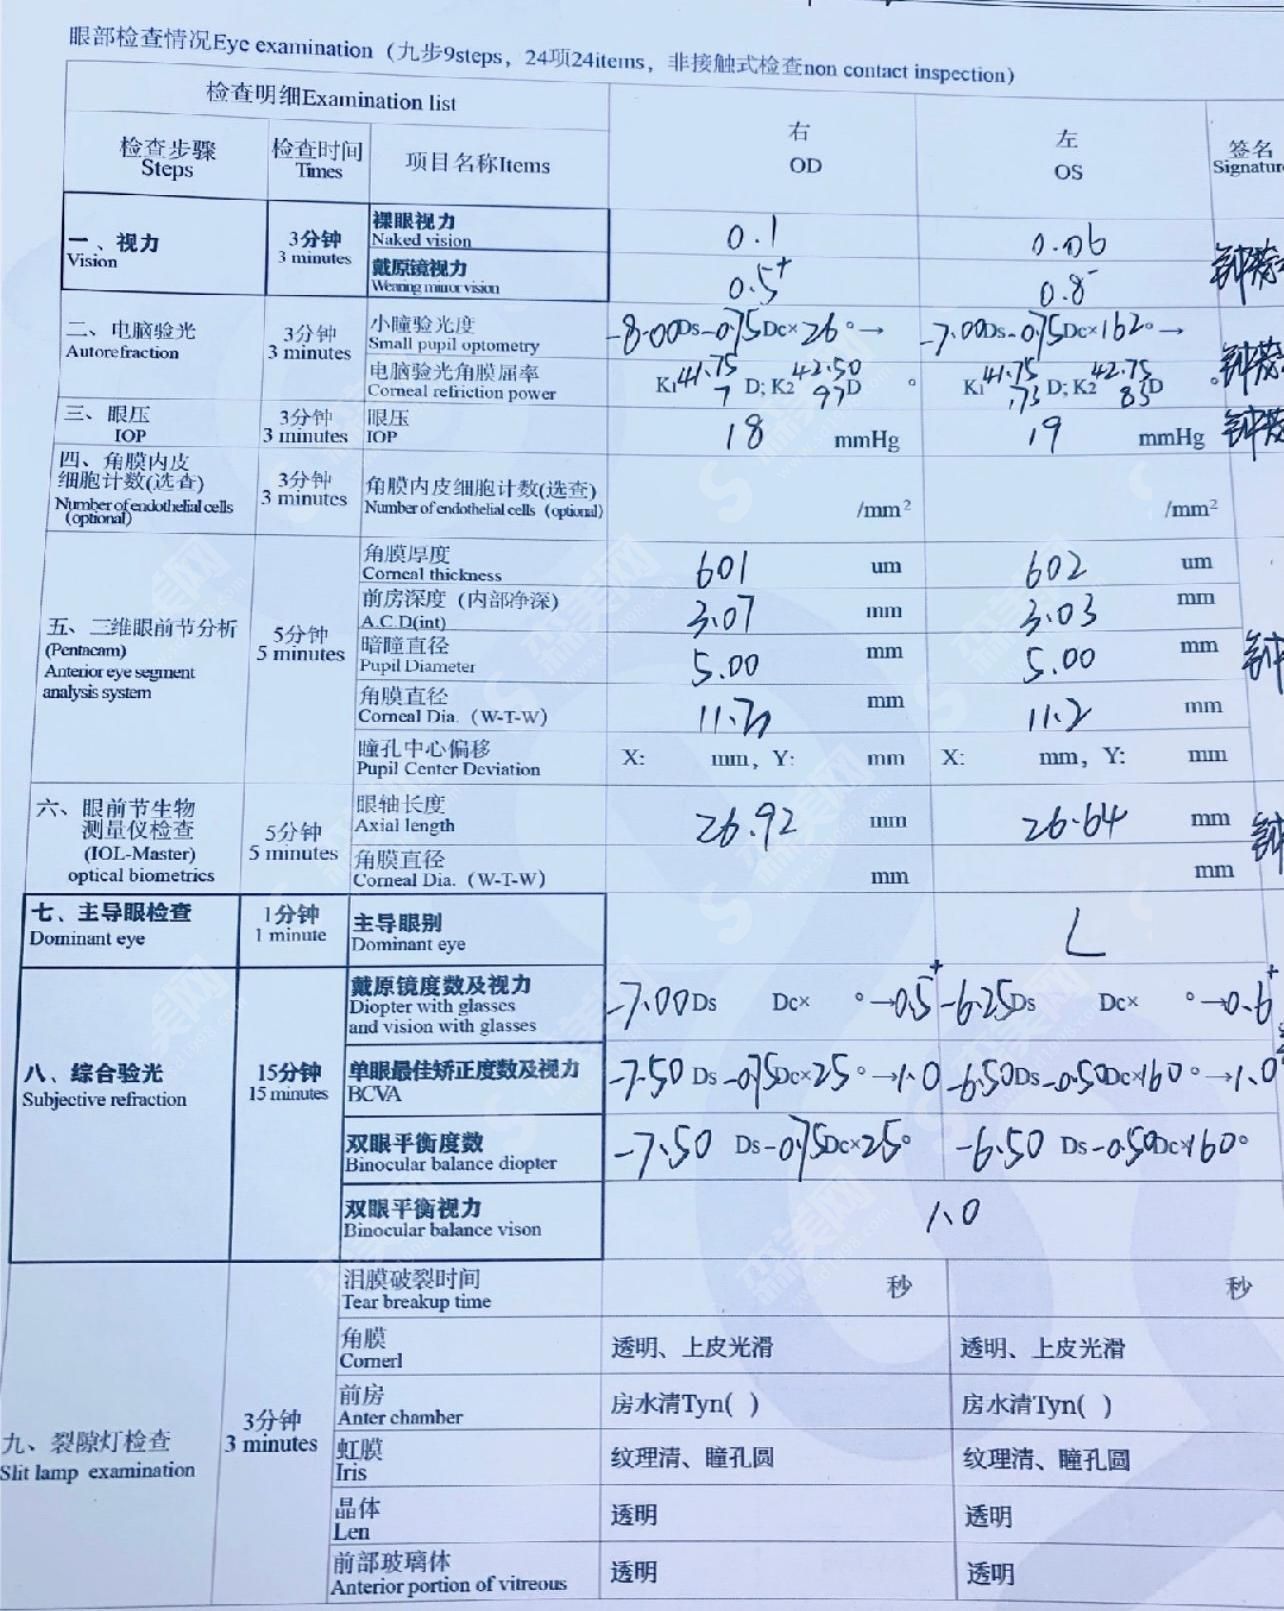 眼部检查情况Eye examination（九步9steps，24项24items，非接触式检查non contact inspection）
检查明细Examination list
右
OD
左
OS
签名
Signatur
检查步骤
Steps
检查时间
Times
项目名称Items
一、视力
Vision
3分钟
3 minutes
裸眼视力
Naked vision
0.1
0.06
戴原镜视力
Wearing mirror vision
0.5+
0.8-
二、电脑验光
Autorefraction
3分钟
3 minutes
小瞳验光度
Small pupil optometry
-8.00Ds-0.75Dc×26°→
-7.00Ds-0.75Dc×162°→
电脑验光角膜屈率
Corneal refriction power
K1 41.75 7 D; K2 42.50 97 D °
K1 41.75 173 D; K2 42.75 85 D °
三、眼压
IOP
3分钟
3 minutes
眼压
IOP
18 mmHg
19 mmHg
四、角膜内皮
细胞计数(选查)
Number of endothelial cells
(optional)
3分钟
3 minutes
角膜内皮细胞计数(选查)
Number of endothelial cells (optional)
/mm²
/mm²
五、三维眼前节分析
(Pentacam)
Anterior eye segment
analysis system
5分钟
5 minutes
角膜厚度
Corneal thickness
601 um
602 um
前房深度（内部净深）
A.C.D(int)
3.07 mm
3.03 mm
暗瞳直径
Pupil Diameter
5.00 mm
5.00 mm
角膜直径
Corneal Dia.（W-T-W）
mm
11.2 mm
瞳孔中心偏移
Pupil Center Deviation
X: mm, Y: mm
X: mm, Y: mm
六、眼前节生物
测量仪检查
(IOL-Master)
optical biometrics
5分钟
5 minutes
眼轴长度
Axial length
26.92 mm
26.64 mm
角膜直径
Corneal Dia.（W-T-W）
mm
mm
七、主导眼检查
Dominant eye
1分钟
1 minute
主导眼别
Dominant eye
L
八、综合验光
Subjective refraction
15分钟
15 minutes
戴原镜度数及视力
Diopter with glasses
and vision with glasses
-7.00Ds Dc× °→0.5+
-6.25Ds Dc× °→0.6+
单眼最佳矫正度数及视力
BCVA
-7.50 Ds-0.75Dc×25°→1.0
-6.50Ds-0.50Dc×160°→1.0
双眼平衡度数
Binocular balance diopter
-7.50 Ds-0.75Dc×25°
-6.50 Ds-0.50Dc×160°
双眼平衡视力
Binocular balance vison
1.0
九、裂隙灯检查
Slit lamp examination
3分钟
3 minutes
泪膜破裂时间
Tear breakup time
秒
秒
角膜
Cornerl
透明、上皮光滑
透明、上皮光滑
前房
Anter chamber
房水清Tyn( )
房水清Tyn( )
虹膜
Iris
纹理清、瞳孔圆
纹理清、瞳孔圆
晶体
Len
透明
透明
前部玻璃体
Anterior portion of vitreous
透明
透明